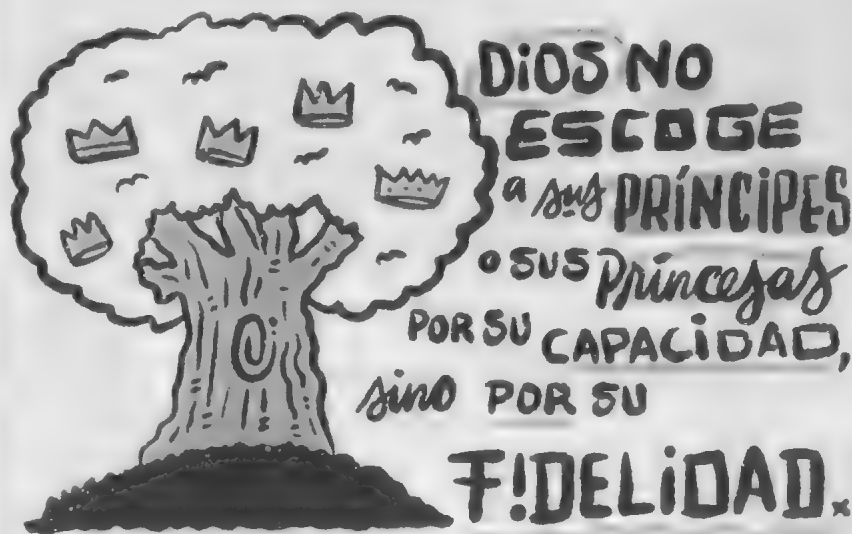 DiOS NO
ESCOGE
a sus PRÍNCiPES
o SUS Princesas
POR SU CAPACiDAD,
sino POR SU
F!DELiDAD.